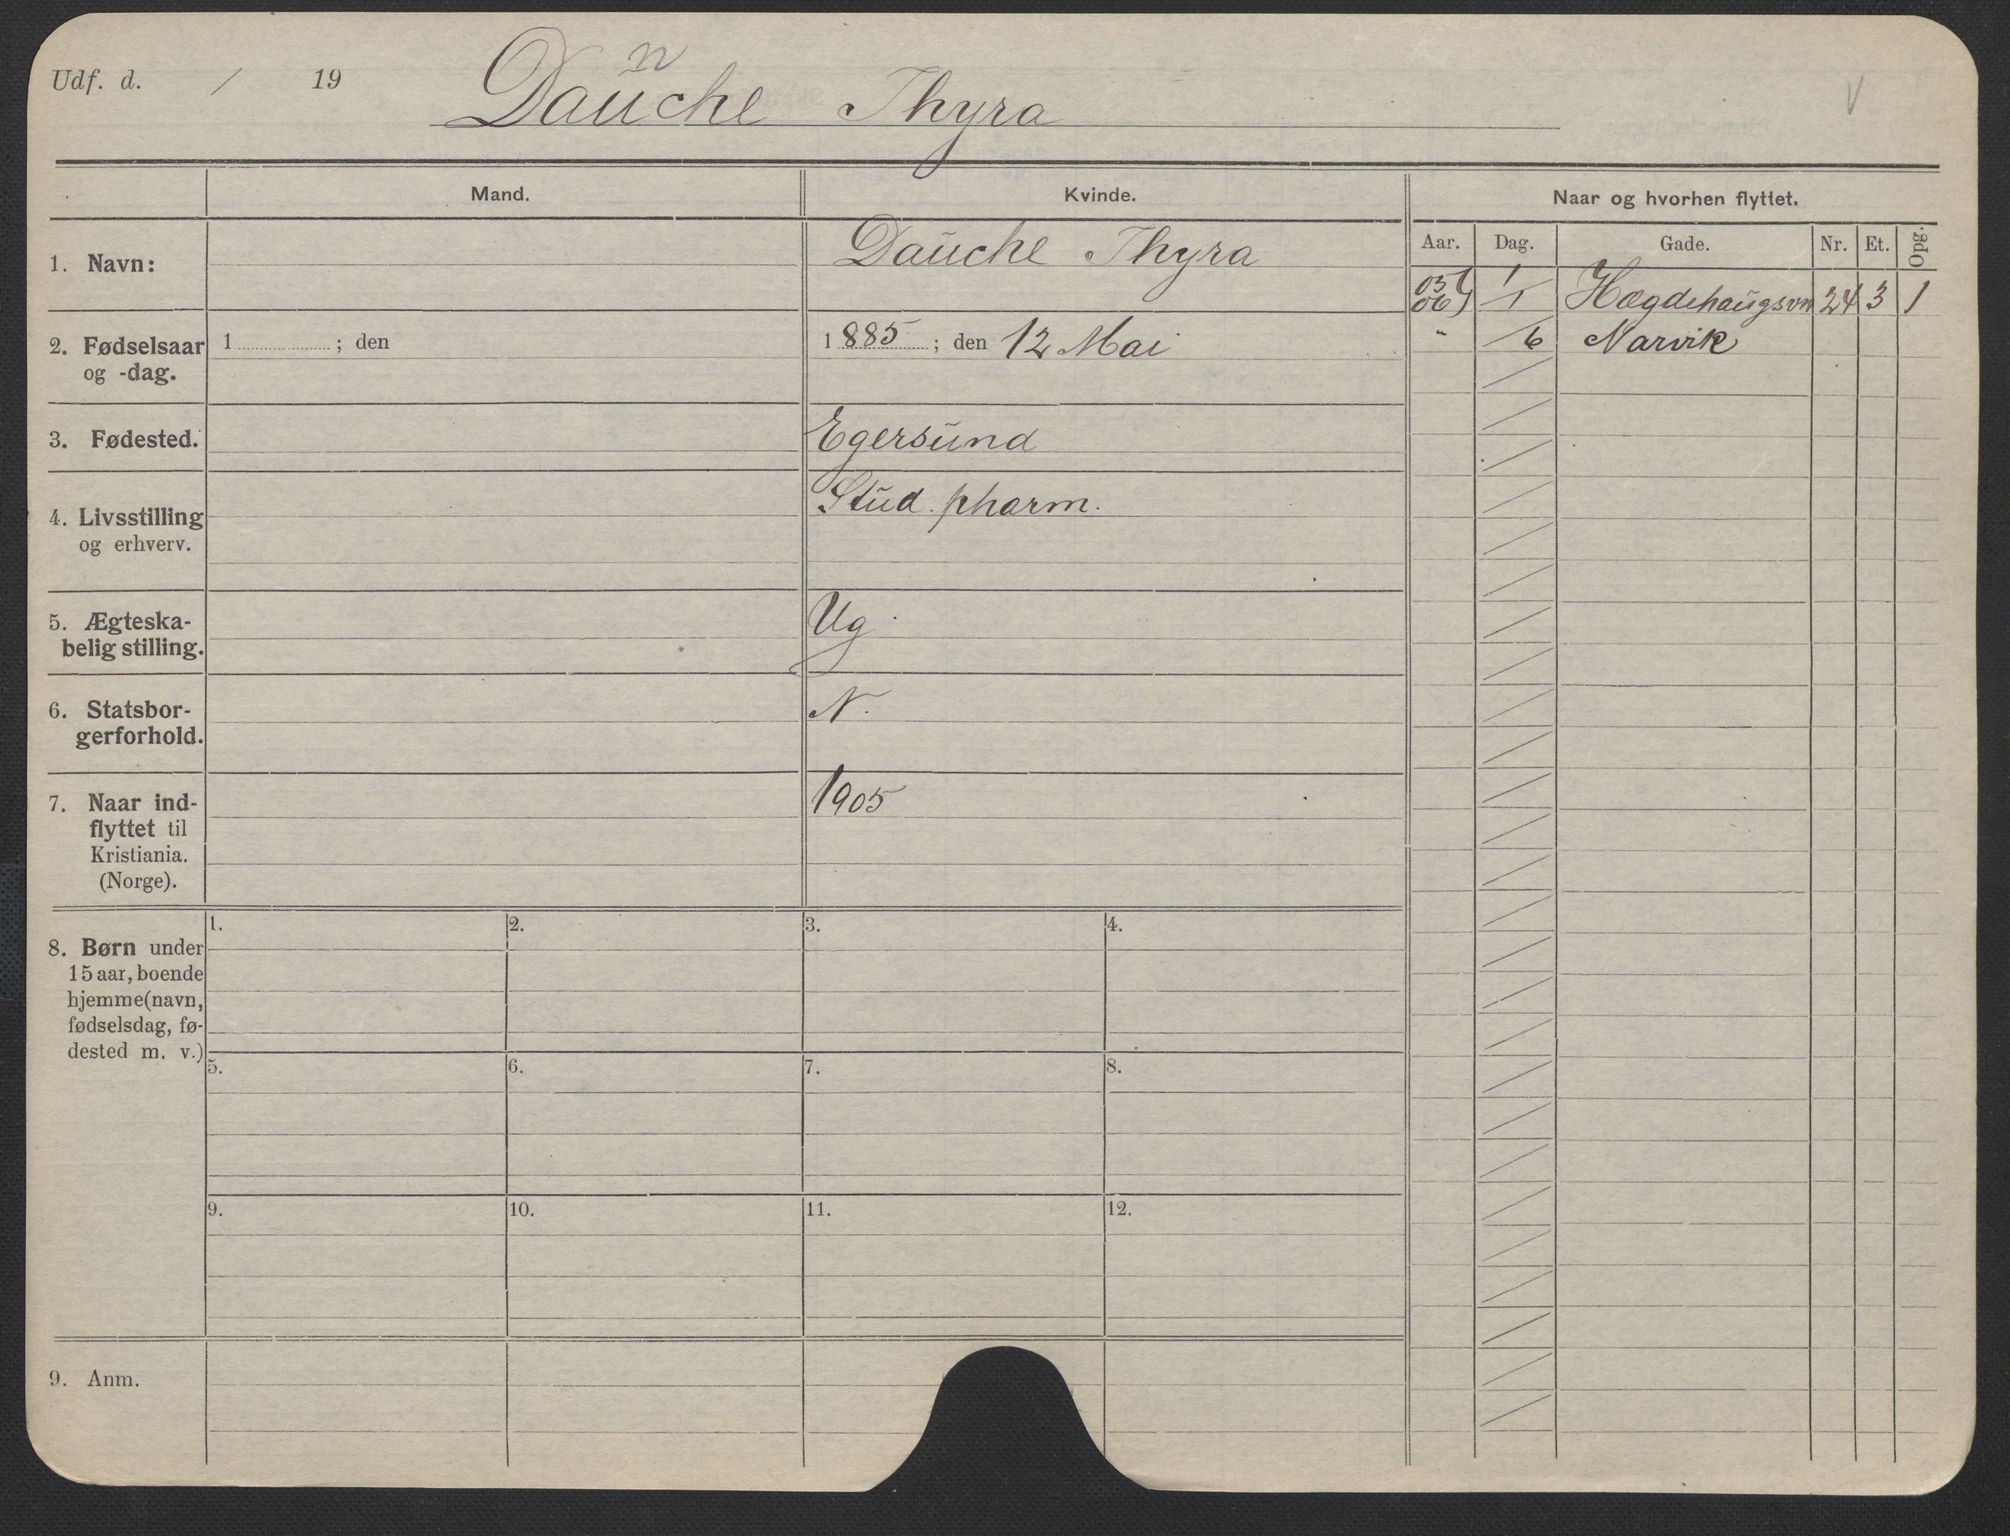 Udf. d. / 19
n
Daŭche Thyra
V
Mand.
Kvinde.
Naar og hvorhen flyttet.
Aar. Dag. Gade. Nr. Et. Opg.
1. Navn:
Daŭche Thyra
05
06 1/1 Hægdehaŭgsvn 24 3 1
" /6 Narvik
2. Fødselsaar
og -dag.
1 ; den
1885 ; den 12 Mai
3. Fødested.
Egersŭnd
4. Livsstilling
og erhverv.
Stŭd. pharm.
5. Ægteska-
belig stilling.
Ug.
6. Statsbor-
gerforhold.
N.
7. Naar ind-
flyttet til
Kristiania.
(Norge).
1905
8. Børn under
15 aar, boende
hjemme (navn,
fødselsdag, fø-
dested m. v.)
1. 2. 3. 4.
5. 6. 7. 8.
9. 10. 11. 12.
9. Anm.